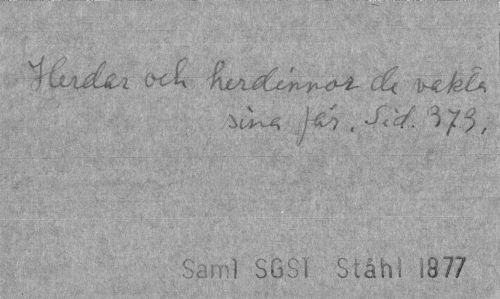 Herdar och herdinnor de vakta
sina får. Sid. 373.
Saml SGS1 Ståhl 1877